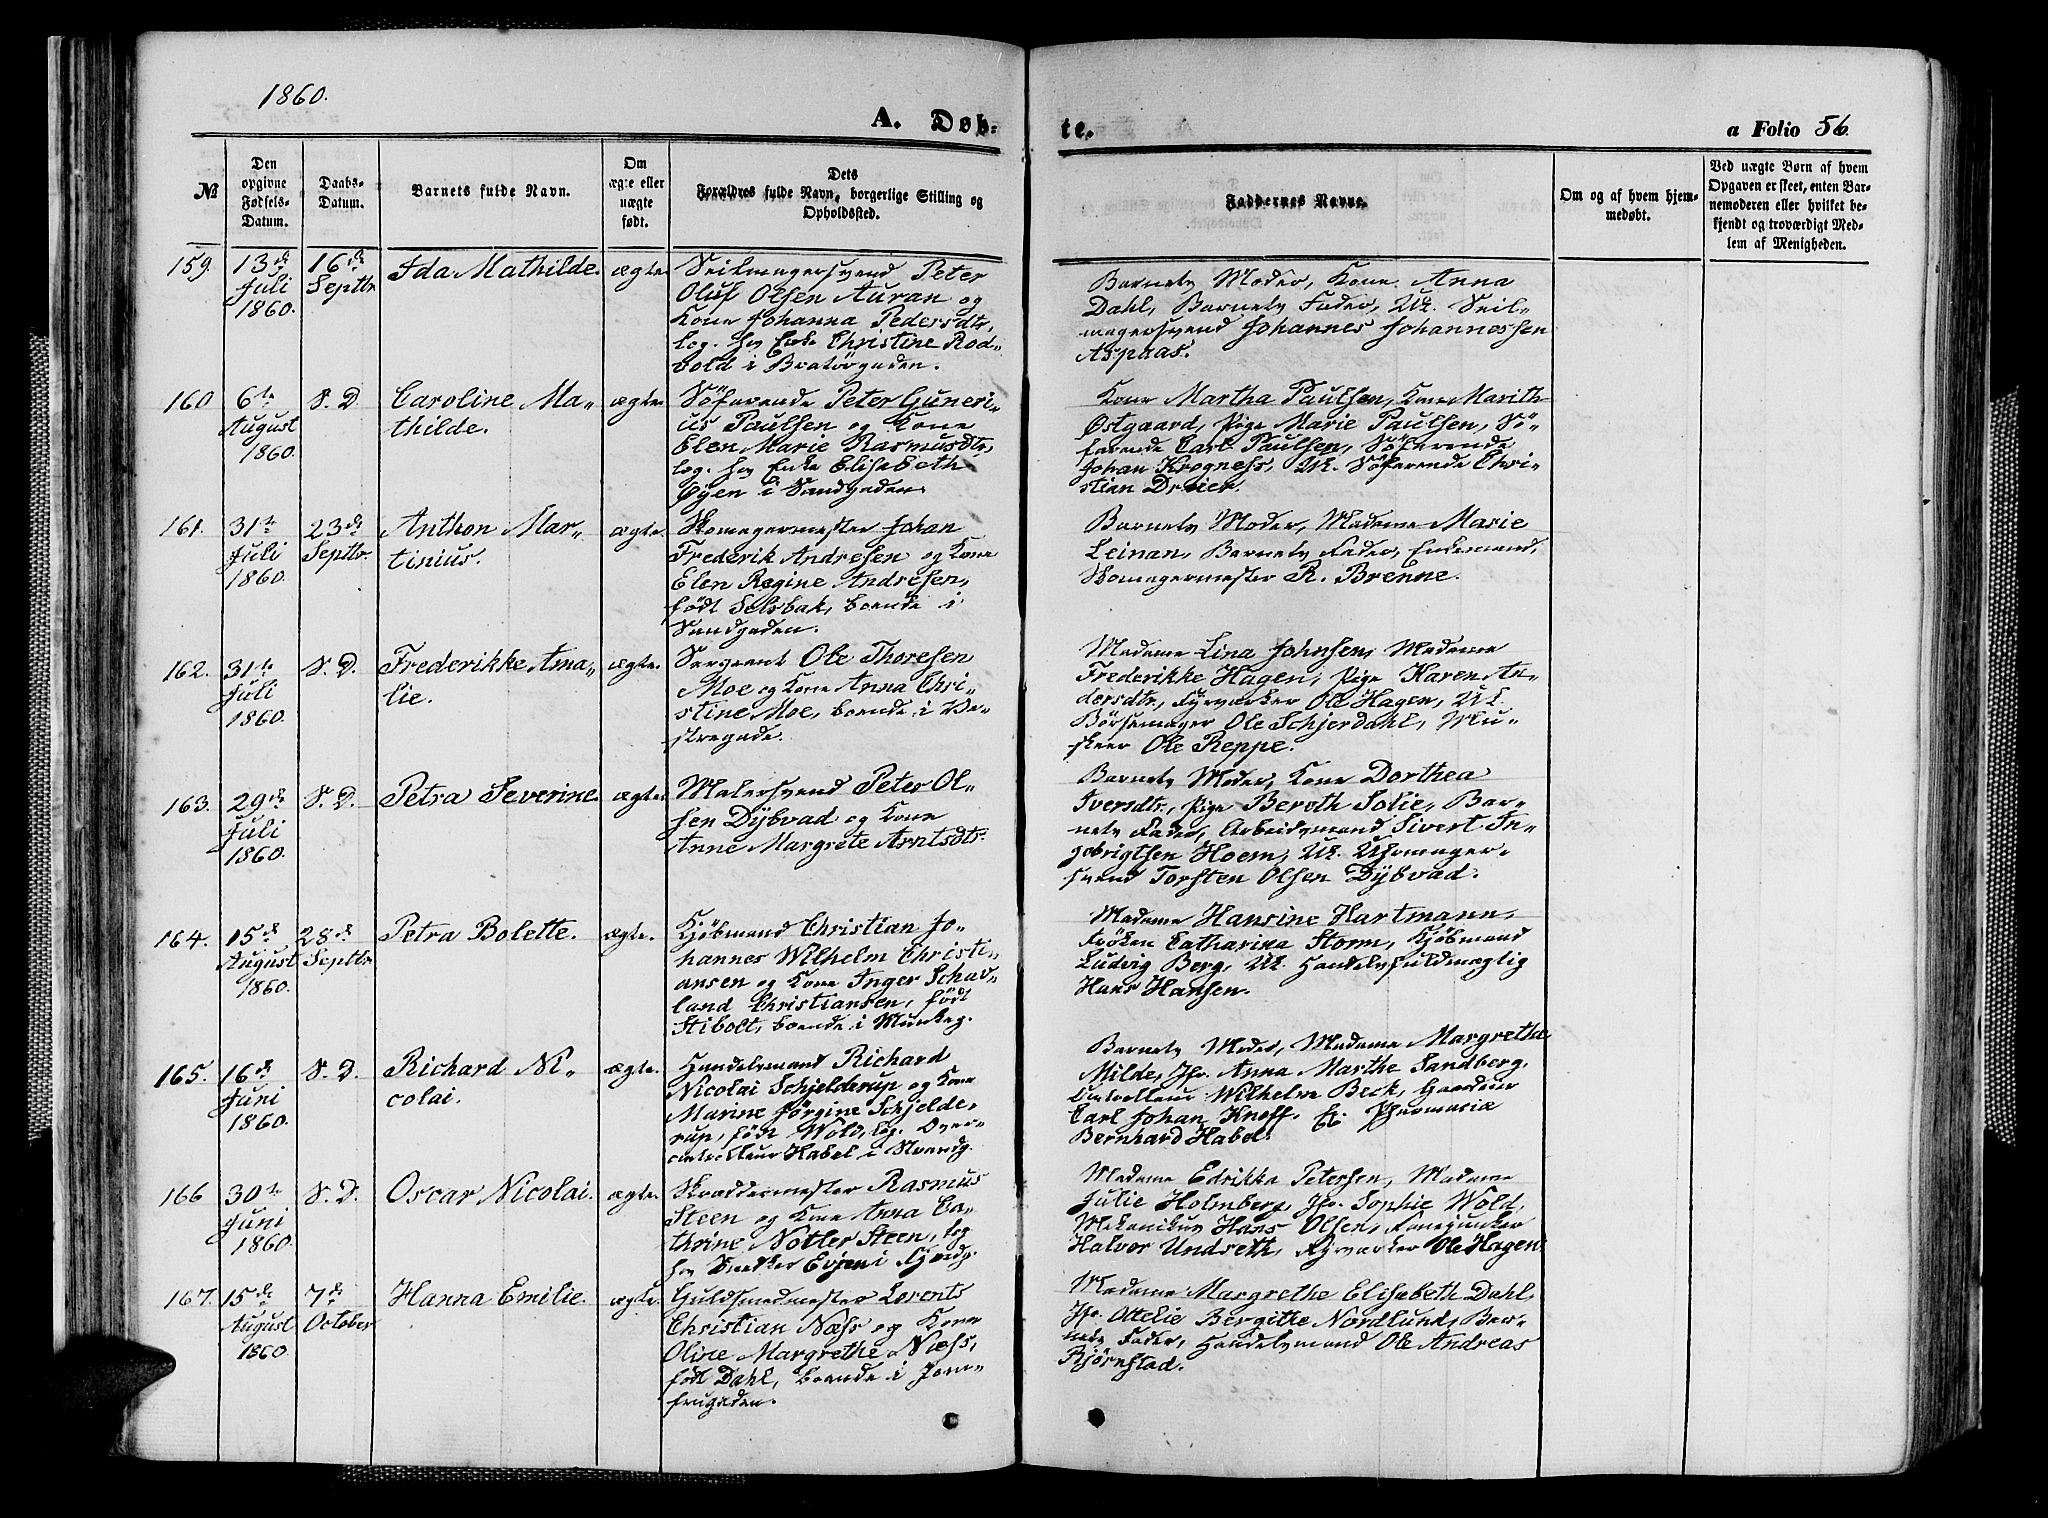 1860.
A. Døb-
te.
a Folio 56.
№
Den opgivne Fødsels-Datum.
Daabs-Datum.
Barnets fulde Navn.
Om ægte eller uægte født.
Dets Forældres fulde Navn, borgerlige Stilling og Opholdssted.
Faddernes Navne.
Om og af hvem hjemmedøbt.
Ved uægte Børn af hvem
Opgaven er skeet, enten Bar-
nemoderen eller hvilket be-
kjendt og troværdigt Med-
lem af Menigheden.
159. 13de Juli 1860. 16de Septbr. Ida Mathilde. ægte.
Seilmagersvend Peter
Oluf Olsen Auran og
Kone Johanna Pedersdtr,
log. hos Enke Christine Rod-
bold i Bratørgaden.
Barnets Moder, Kone Anna
Dahl, Barnets Fader, Uk. Seil-
magersvend Johannes Johannessen
Aspaas.
160 6te August 1860. S. D. Caroline Ma-
thilde. ægte
Søfarende Peter Guneri-
us Paulsen og Kone
Elen Marie Rasmusdtr,
log. hos Enke Elisabeth
Øyen i Sandgaden.
Kone Martha Paulsen, Kone Marith
Østgaard, Pige Marie Paulsen, Sø-
farende Carl Paulsen, Søfarende
Johan Krogness, Uk. Søfarende Chri-
stian Dreier.
161. 31te Juli 1860. 23de Septbr. Anthon Mar-
tinius. ægte.
Skomagermester Johan
Frederik Andresen og Kone
Elen Regine Andresen,
født Selsbak, boende i
Sandgaden.
Barnets Moder, Madame Marie
Leinan, Barnets Fader, Enkemand,
Skomagermester R. Brenne.
162. 31te Juli 1860. S. D. Frederikke Ama-
lie. ægte.
Sergeant Ole Thoresen
Moe og Kone Anna Chri-
stine Moe, boende i Ve-
stregade.
Madame Lina Johnsen, Madame
Frederikke Hagen, Pige Karen An-
dersdtr, Fyrværker Ole Hagen, Uk.
Børsemager Ole Schjerdahl, Mu-
skeer Ole Reppe.
163. 29de Juli 1860. S. D. Petra Severine. ægte.
Malersvend Peter Ol-
sen Dybvad og Kone
Anne Margrete Arntsdtr.
Barnets Moder, Kone Dorthea
Iversdtr, Pige Beroth Solie, Bar-
nets Fader, Arbeidsmand Sivert In-
gebrigtsen Hoem, Uk. Uhrmager-
svend Torsten Olsen Dybvad.
164. 15de August 1860. 28de Septbr. Petra Bolette. ægte.
Kjøbmand Christian Jo-
hannes Wilhelm Christi-
ansen og Kone Inger Schav-
land Christiansen, født
Stibolt, boende i Munkeg.
Madame Hansine Hartmann,
Frøken Catharina Storm, Kjøbmand
Ludvig Berg, Uk. Handelsfuldmægtig
Hans Hansen.
165. 16de Juni 1860. S. D. Richard Ni-
colai. ægte.
Handelsmand Richard
Nicolai Schjelderup og Kone
Marine Jörgine Schjelde-
rup, født Wold, log. Over-
controlleur Habel i Strandg.
Barnets Moder, Madame Margretha
Milde, Jfr. Anna Marthe Sandberg,
Controlleur Wilhelm Beck, Gaardeier
Carl Johan Knoff, Ex. Pharmacia
Bernhard Habel.
166 30te Juni 1860. S. D. Oscar Nicolai. ægte.
Skræddermester Rasmus
Steen og Kone Anna Ca-
thrine Notler Steen, log
hos Snedker Evjen i Kjøndg.
Madame Edrikka Petersen, Madame
Julie Holmberg, Jfr. Sophie Wold,
Mekanikus Hans Olsen, Fanejunker
Halvor Undseth, Fyrværker Ole Hagen.
167. 15de August 1860. 7de October Hanna Emilie. ægte.
Guldsmedmester Lorents
Christian Næss og Kone
Oline Margrethe Næss,
født Dahl, boende i Jom-
frugaden.
Madame Margrethe Elisabeth Dahl,
Jfr. Ottelie Bergithe Nordlund, Bar-
nets Fader, Handelsmand Ole Andreas
Bjørnstad.